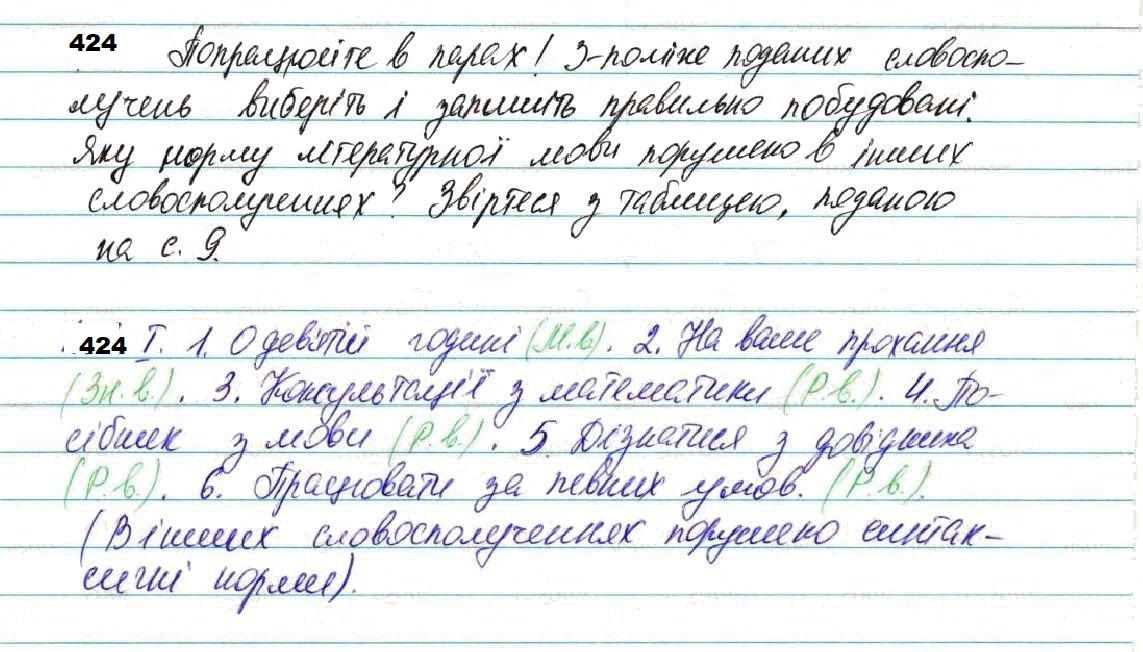 424 Попрацюйте в парах! З-поміж поданих словоспо-
лучень виберіть і запишіть правильно побудовані.
Яку норму літературної мови порушено в інших
словосполученнях? Звіртеся з таблицею, поданою
на с. 9.
424 I. 1. О дев'ятій годині (М.в). 2. На ваше прохання
(Зн.в.). 3. Консультації з математики (Р.в.). 4. По-
сібник з мови (Р.в.). 5. Дізнатися з довідника
(Р.в.). 6. Працювати за певних умов. (Р.в.).
(В інших словосполученнях порушено синтак-
сичні норми).